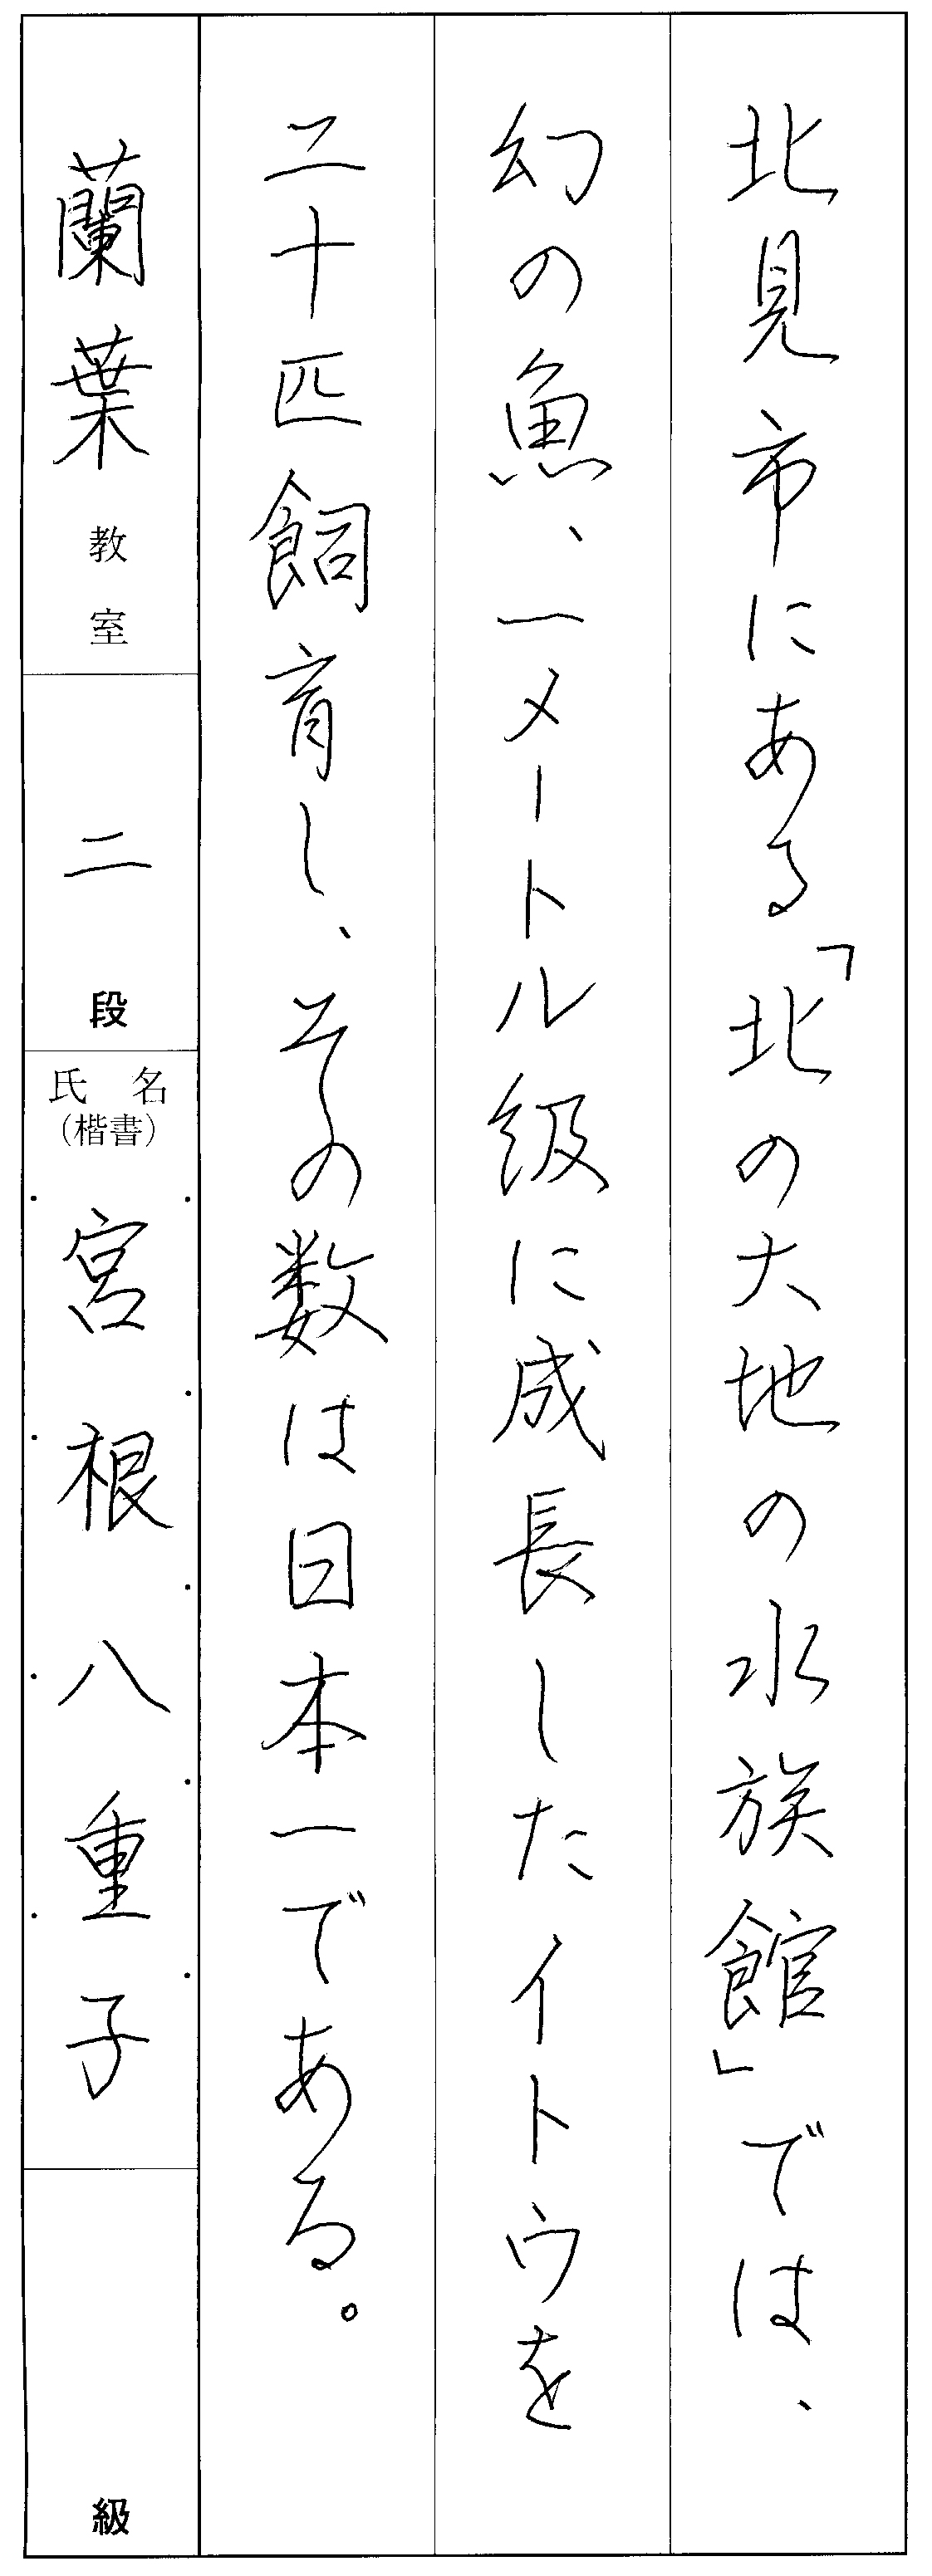 北見市にある「北の大地の水族館」では、
幻の魚、一メートル級に成長したイトウを
二十匹飼育し、その数は日本一である。
蘭葉教室
二段
氏名
(楷書)
宮根八重子
級